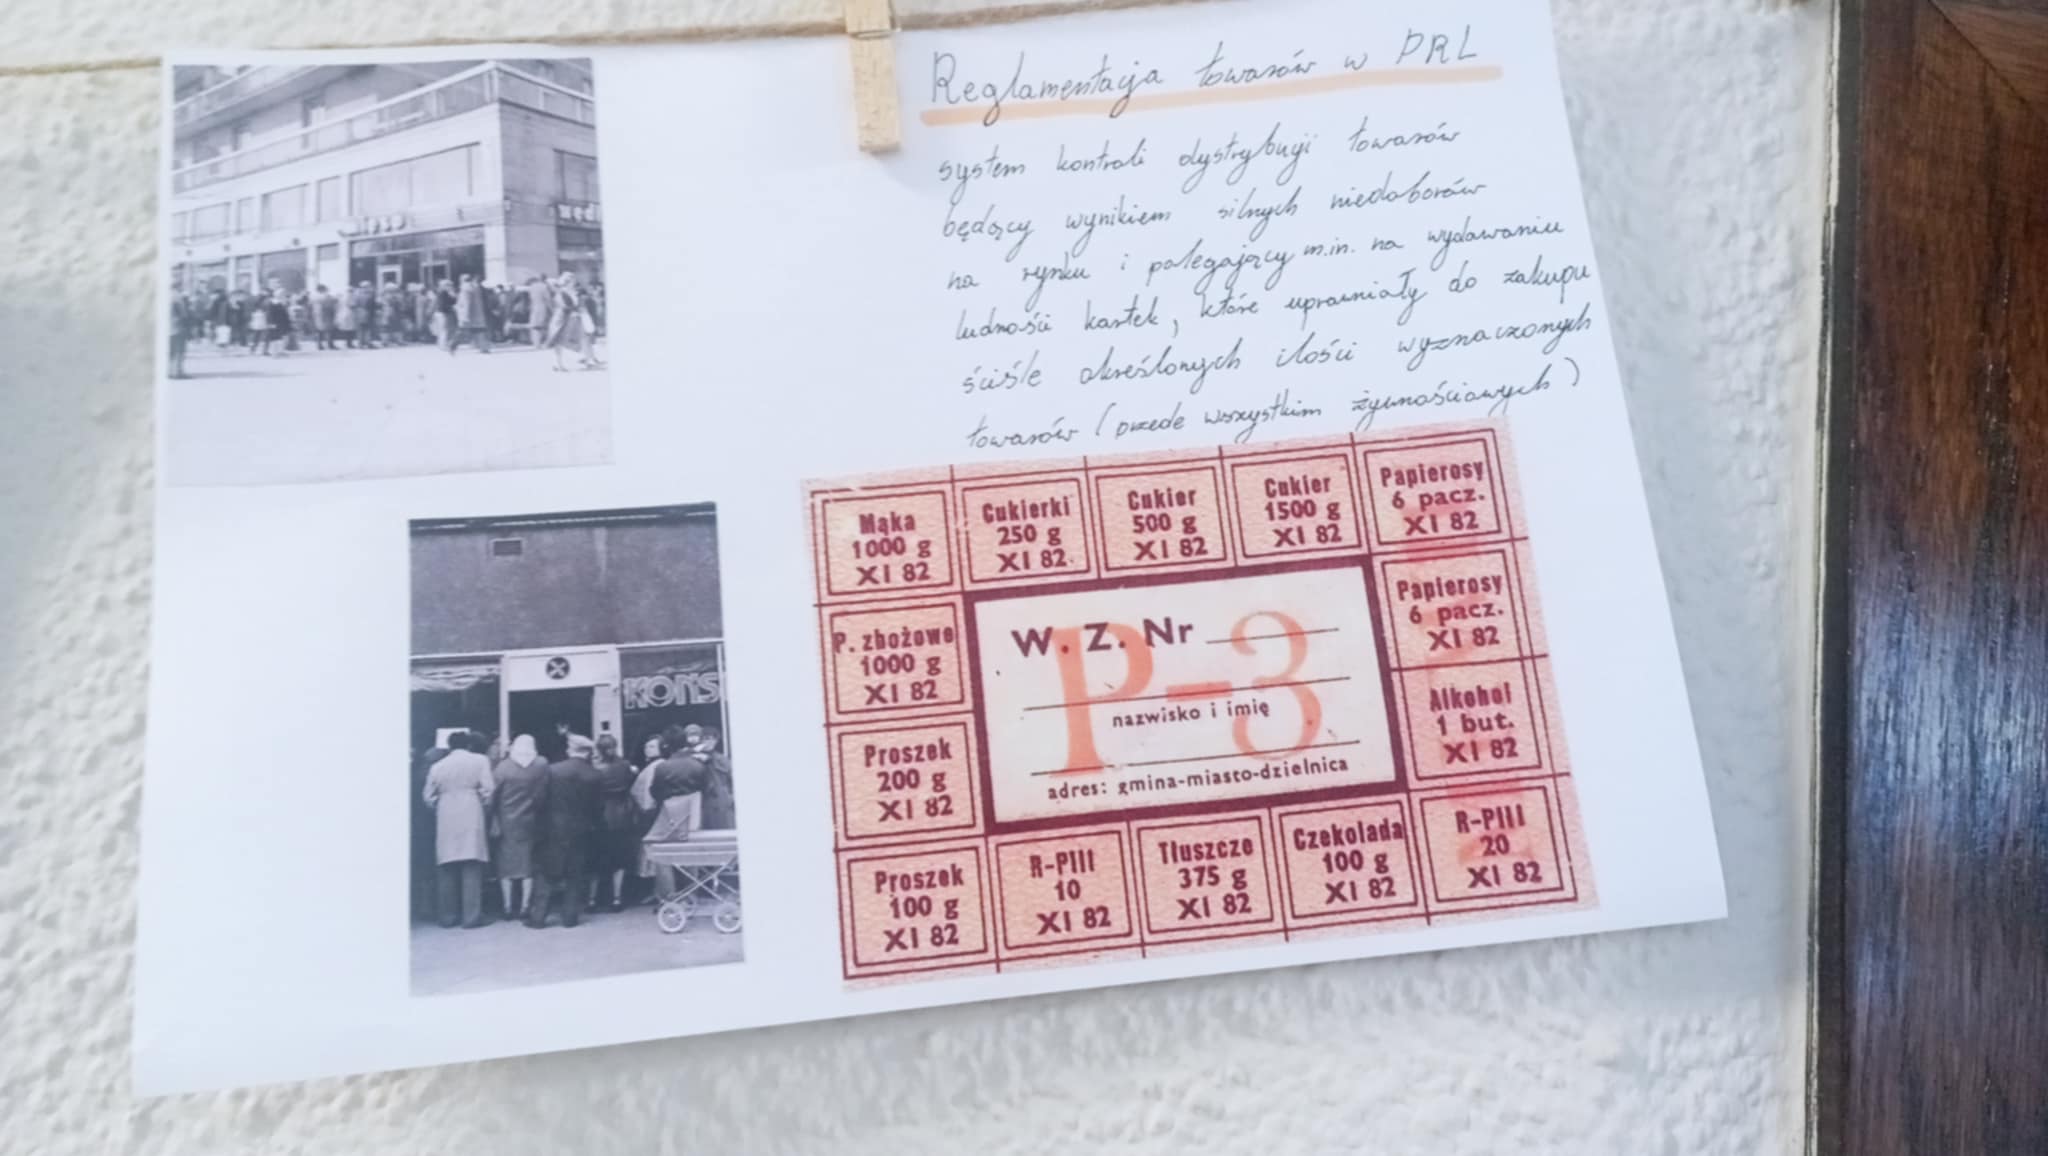 Reglamentacja towarów w PRL
system kontroli dystrybucji towarów
będący wynikiem silnych niedoborów
na rynku i polegający m.in. na wydawaniu
ludności kartek, które uprawniały do zakupu
ściśle określonych ilości wyznaczonych
towarów (przede wszystkim żywnościowych)
KONS
Mąka
1000 g
XI 82
Cukierki
250 g
XI 82
Cukier
500 g
XI 82
Cukier
1500 g
XI 82
Papierosy
6 pacz.
XI 82
P. zbożowe
1000 g
XI 82
W. Z. Nr
P-3
nazwisko i imię
adres: gmina-miasto-dzielnica
Papierosy
6 pacz.
XI 82
Proszek
200 g
XI 82
Alkohol
1 but.
XI 82
Proszek
100 g
XI 82
R-PIII
10
XI 82
Tłuszcze
375 g
XI 82
Czekolada
100 g
XI 82
R-PIII
20
XI 82